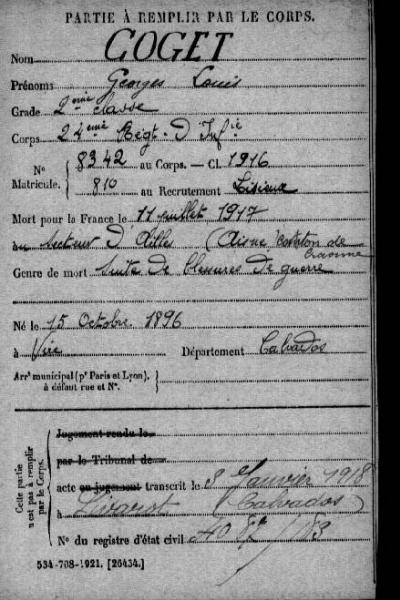 PARTIE À REMPLIR PAR LE CORPS.
Nom GOGET
Prénoms Georges Louis
Grade 2eme classe
Corps 24eme Régt. D'Infie
N° 8342 au Corps. — Cl. 1916
Matricule. 810 au Recrutement Lisieux
Mort pour la France le 11 juillet 1917
au secteur D' (Aisne) canton de
Craonne
Genre de mort Suite de blessures de guerre
Né le 15 Octobre 1896
à Vire Département Calvados
Arrt municipal (pr Paris et Lyon),
à défaut rue et N°.
Cette partie
n'est pas à remplir
par le Corps.
Jugement rendu le
par le Tribunal de
acte ou jugement transcrit le 8 Janvier 1918
à Livarot (Calvados)
N° du registre d'état civil
534-708-1921. [26434.]